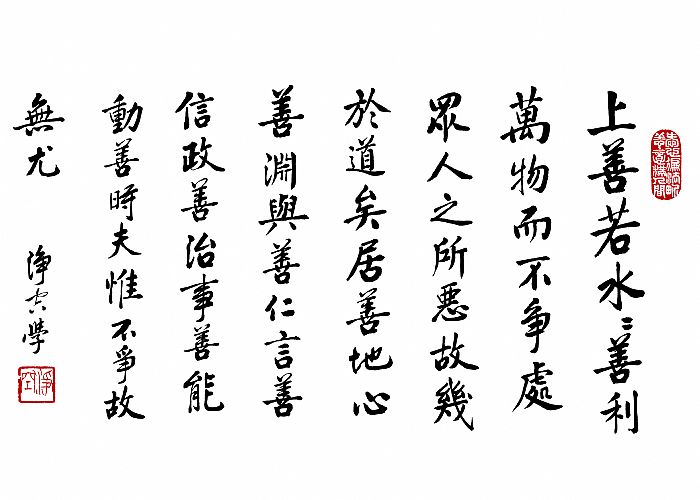 上善若水〻善利
萬物而不争處
眾人之所惡故幾
於道矣居善地心
善淵與善仁言善
信政善治事善能
動善時夫惟不爭故
無尤
淨空學
淨空